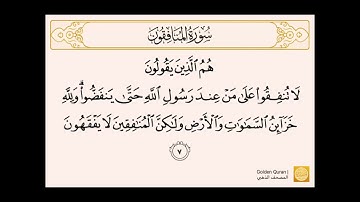 سُورَةُ المُنَافِقُونَ
هُمُ الَّذِينَ يَقُولُونَ
لَا تُنفِقُوا عَلَىٰ مَنْ عِندَ رَسُولِ اللَّهِ حَتَّىٰ يَنفَضُّوا ۗ وَلِلَّهِ
خَزَائِنُ السَّمَاوَاتِ وَالْأَرْضِ وَلَٰكِنَّ الْمُنَافِقِينَ لَا يَفْقَهُونَ
٧
Golden Quran |
المصحف الذهبي